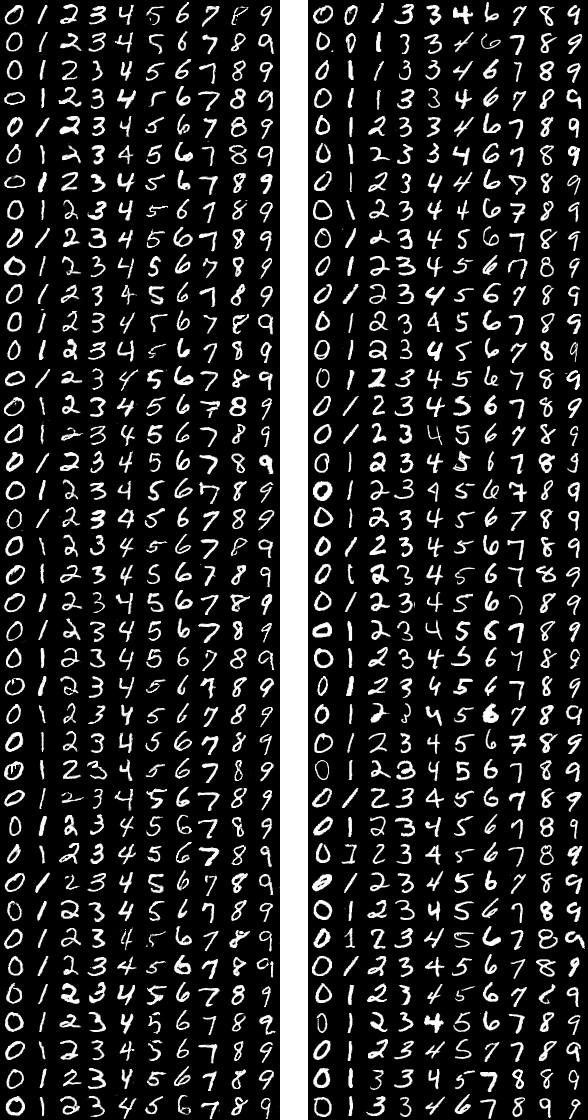 0 1 2 3 4 5 6 7 8 9
0 1 2 3 4 5 6 7 8 9
0 1 2 3 4 5 6 7 8 9
0 1 2 3 4 5 6 7 8 9
0 1 2 3 4 5 6 7 8 9
0 1 2 3 4 5 6 7 8 9
0 1 2 3 4 5 6 7 8 9
0 1 2 3 4 5 6 7 8 9
0 1 2 3 4 5 6 7 8 9
0 1 2 3 4 5 6 7 8 9
0 1 2 3 4 5 6 7 8 9
0 1 2 3 4 5 6 7 8 9
0 1 2 3 4 5 6 7 8 9
0 1 2 3 4 5 6 7 8 9
0 1 2 3 4 5 6 7 8 9
0 1 2 3 4 5 6 7 8 9
0 1 2 3 4 5 6 7 8 9
0 1 2 3 4 5 6 7 8 9
0 1 2 3 4 5 6 7 8 9
0 1 2 3 4 5 6 7 8 9
0 1 2 3 4 5 6 7 8 9
0 1 2 3 4 5 6 7 8 9
0 1 2 3 4 5 6 7 8 9
0 1 2 3 4 5 6 7 8 9
0 1 2 3 4 5 6 7 8 9
0 1 2 3 4 5 6 7 8 9
0 1 2 3 4 5 6 7 8 9
0 1 2 3 4 5 6 7 8 9
0 1 2 3 4 5 6 7 8 9
0 1 2 3 4 5 6 7 8 9
0 1 2 3 4 5 6 7 8 9
0 1 2 3 4 5 6 7 8 9
0 1 2 3 4 5 6 7 8 9
0 1 2 3 4 5 6 7 8 9
0 1 2 3 4 5 6 7 8 9
0 1 2 3 4 5 6 7 8 9
0 1 2 3 4 5 6 7 8 9
0 1 2 3 4 5 6 7 8 9
0 1 2 3 4 5 6 7 8 9
0 1 2 3 4 5 6 7 8 9
0 0 1 3 3 4 6 7 8 9
0 0 1 3 3 4 6 7 8 9
0 1 1 3 3 4 6 7 8 9
0 1 1 3 3 4 6 7 8 9
0 1 2 3 3 4 6 7 8 9
0 1 2 3 3 4 6 7 8 9
0 1 2 3 4 4 6 7 8 9
0 1 2 3 4 4 6 7 8 9
0 1 2 3 4 5 6 7 8 9
0 1 2 3 4 5 6 7 8 9
0 1 2 3 4 5 6 7 8 9
0 1 2 3 4 5 6 7 8 9
0 1 2 3 4 5 6 7 8 9
0 1 2 3 4 5 6 7 8 9
0 1 2 3 4 5 6 7 8 9
0 1 2 3 4 5 6 7 8 9
0 1 2 3 4 5 6 7 8 9
0 1 2 3 4 5 6 7 8 9
0 1 2 3 4 5 6 7 8 9
0 1 2 3 4 5 6 7 8 9
0 1 2 3 4 5 6 7 8 9
0 1 2 3 4 5 6 7 8 9
0 1 2 3 4 5 6 7 8 9
0 1 2 3 4 5 6 7 8 9
0 1 2 3 4 5 6 7 8 9
0 1 2 3 4 5 6 7 8 9
0 1 2 3 4 5 6 7 8 9
0 1 2 3 4 5 6 7 8 9
0 1 2 3 4 5 6 7 8 9
0 1 2 3 4 5 6 7 8 9
0 1 2 3 4 5 6 7 8 9
0 1 2 3 4 5 6 7 8 9
0 1 2 3 4 5 6 7 8 9
0 1 2 3 4 5 6 7 8 9
0 1 2 3 4 5 6 7 8 9
0 1 2 3 4 5 6 7 8 9
0 1 2 3 4 5 6 7 8 9
0 1 2 3 4 5 7 7 8 9
0 1 3 3 4 5 7 8 8 9
0 1 3 3 4 6 7 8 9 9